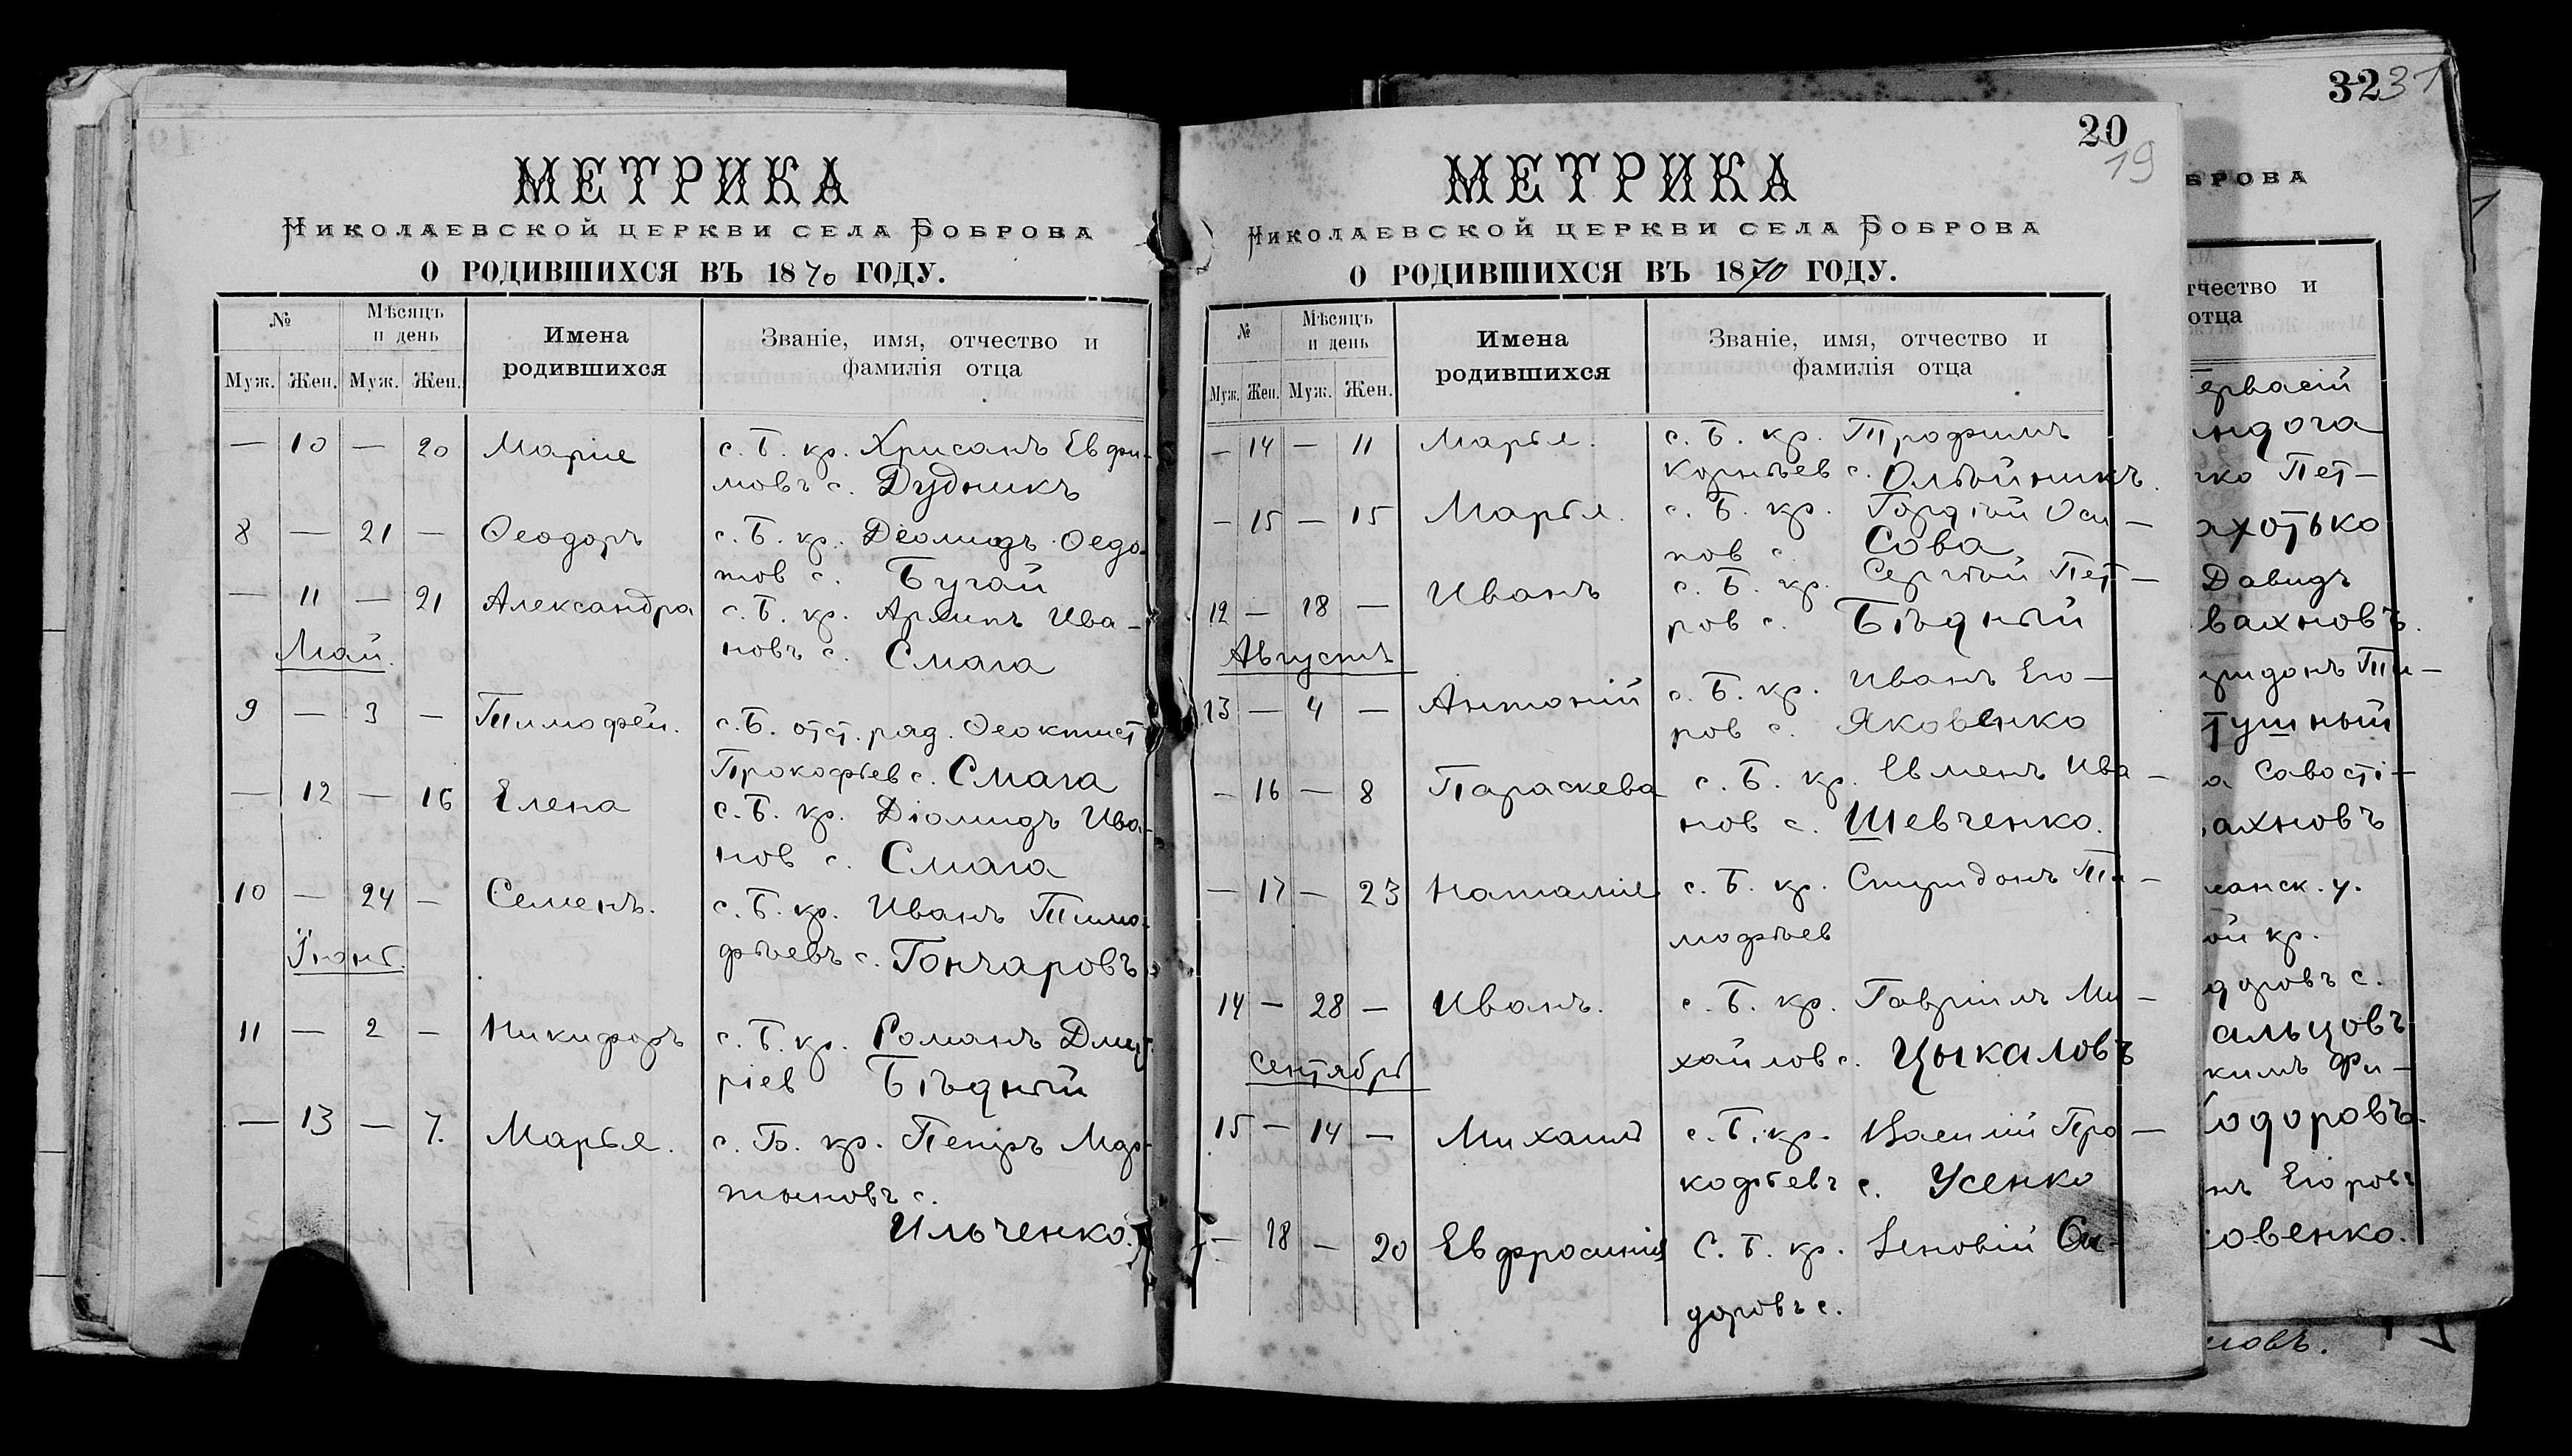 МЕТРИКА
Николаевской церкви села Боброва
О РОДИВШИХСЯ ВЪ 1870 ГОДУ.
№
Мѣсяцъ и день
Имена родившихся
Званіе, имя, отчество и фамилія отца
Муж. Жен. Муж. Жен.
— 10 — 20 Маріе с. Б. кр. Хрисанъ Евфи-
мовъ с. Дудникъ
8 — 21 — Ѳеодоръ с. Б. кр. Діомидъ Ѳедо-
тов с. Бугай
— 11 — 21 Александра с. Б. кр. Архипъ Ива-
новъ с. Смага
Май.
9 — 3 — Тимофей. с. Б. отст. ряд. Ѳеоктист
Прокофьев с. Смага
— 12 — 16 Елена с. Б. кр. Діомидъ Ива-
нов с. Смага
10 — 24 — Семенъ. с. Б. кр. Иванъ Тимо-
фѣевъ с. Гончаровъ
Іюнь
11 — 2 — Никифоръ с. Б. кр. Романъ Дмит-
ріев Бѣдный
— 13 — 7. Марья. с. Б. кр. Петръ Мар-
тыновъ с.
Ильченко.
20
19
МЕТРИКА
Николаевской церкви села Боброва
О РОДИВШИХСЯ ВЪ 1870 ГОДУ.
№
Мѣсяцъ и день
Имена родившихся
Званіе, имя, отчество и фамилія отца
Муж. Жен. Муж. Жен.
— 14 — 11 Марья. с. Б. кр. Трофимъ
Корнѣев с. Олѣйникъ.
— 15 — 15 Марья. с. Б. кр. Гордѣй Оси-
пов с. Сова
12 — 18 — Иванъ с. Б. кр. Сергѣй Пет-
ров с. Бѣдный
Августъ
13 — 4 — Антоній с. Б. кр. Иванъ Его-
ров с. Яковенко
— 16 — 8 Параскева с. Б. кр. Евменъ Ива-
нов с. Шевченко.
— 17 — 23 Наталіе с. Б. кр. Спиридонъ Ти-
мофѣев
14 — 28 — Иванъ. с. Б. кр. Гавріилъ Ми-
хайлов с. Цыкаловъ
Сентябрь
15 — 14 — Михаилъ с. Б. кр. Василій Про-
кофьевъ с. Усенко
— 18 — 20 Евфросинія С. Б. кр. Зеновій Си-
доровъ с.
32
31
БРОВА
тчество и
отца
ервасій
ндога
ко Пет-
ахотько
Давидъ
вахновъ.
ридонъ Ти-
тушный
а Савості-
ахновъ
анск. у.
ой кр.
доровъ с.
альцовъ
кимъ Фи-
одоровъ.
нъ Егоровъ
овенко.
новъ.